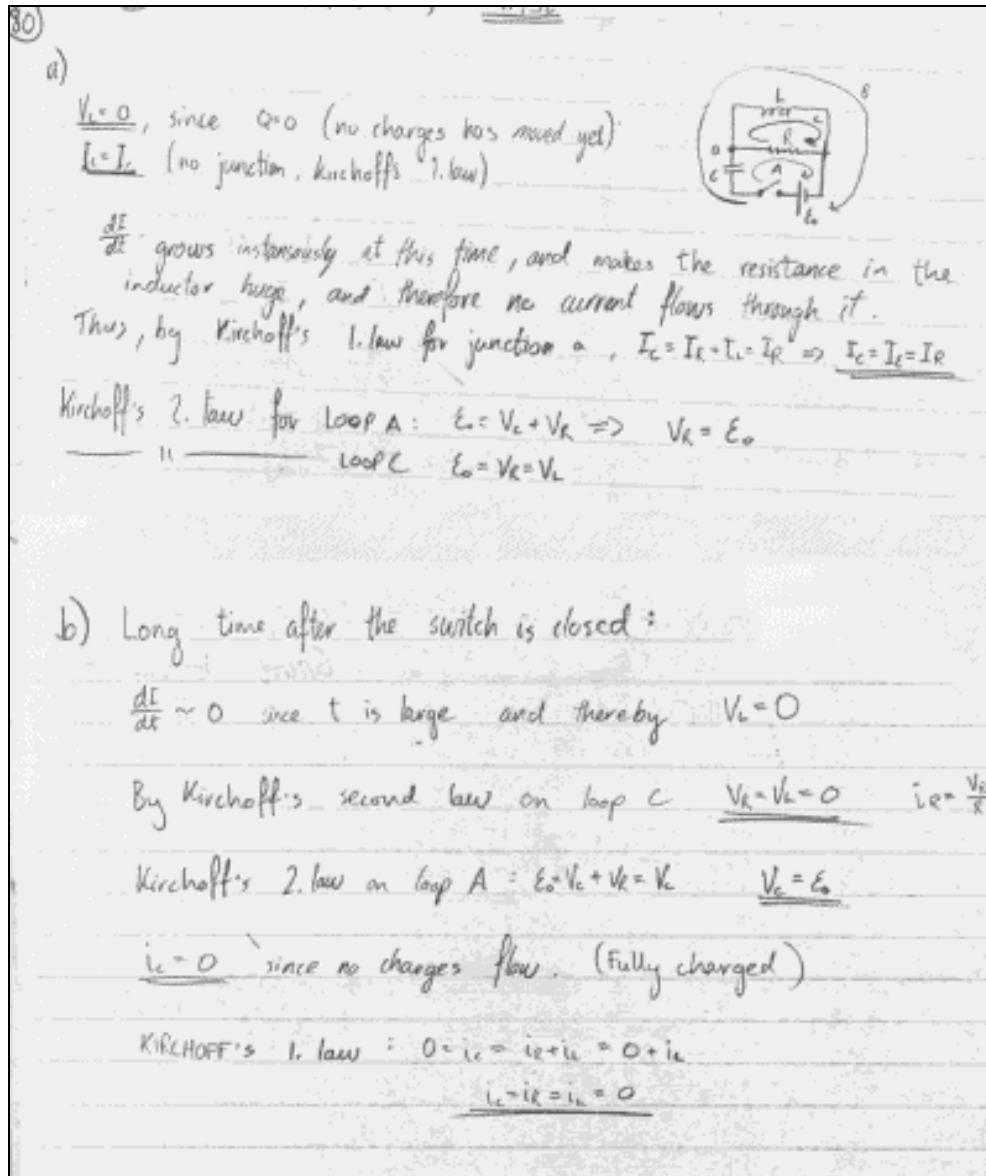 80
a)
V_c = 0, since Q=0 (no charges has moved yet)
(no junction, kirchoffs 1. law)
L
R
A
C
ε₀
dI/dt grows instansously at this time, and makes the resistance in the
inductor huge, and therefore no current flows through it.
Thus, by Kirchoff's 1. law for junction a, I_C = I_R + I_L = I_R => I_C = I_ε = I_R
Kirchoff's 2. law for LOOP A: ε₀ = V_C + V_R => V_R = ε₀
—— 11 —— LOOP C ε₀ = V_R = V_L
b) Long time after the switch is closed:
dI/dt ~ 0 since t is large and thereby V_L = 0
By Kirchoff's second law on loop C V_R = V_L = 0 i_R = V_R/R
Kirchoff's 2. law on loop A: ε₀ = V_C + V_R = V_C V_C = ε₀
i_c = 0 since no charges flow. (Fully charged)
KIRCHOFF's 1. law: 0 = i_c = i_R + i_L = 0 + i_L
i_c = i_R = i_L = 0